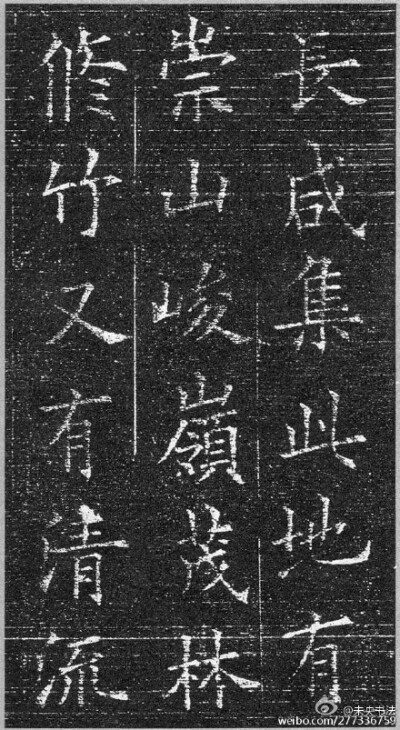 長咸集此地有
崇山峻嶺茂林
修竹又有清流
@未央书法
weibo.com/277336759